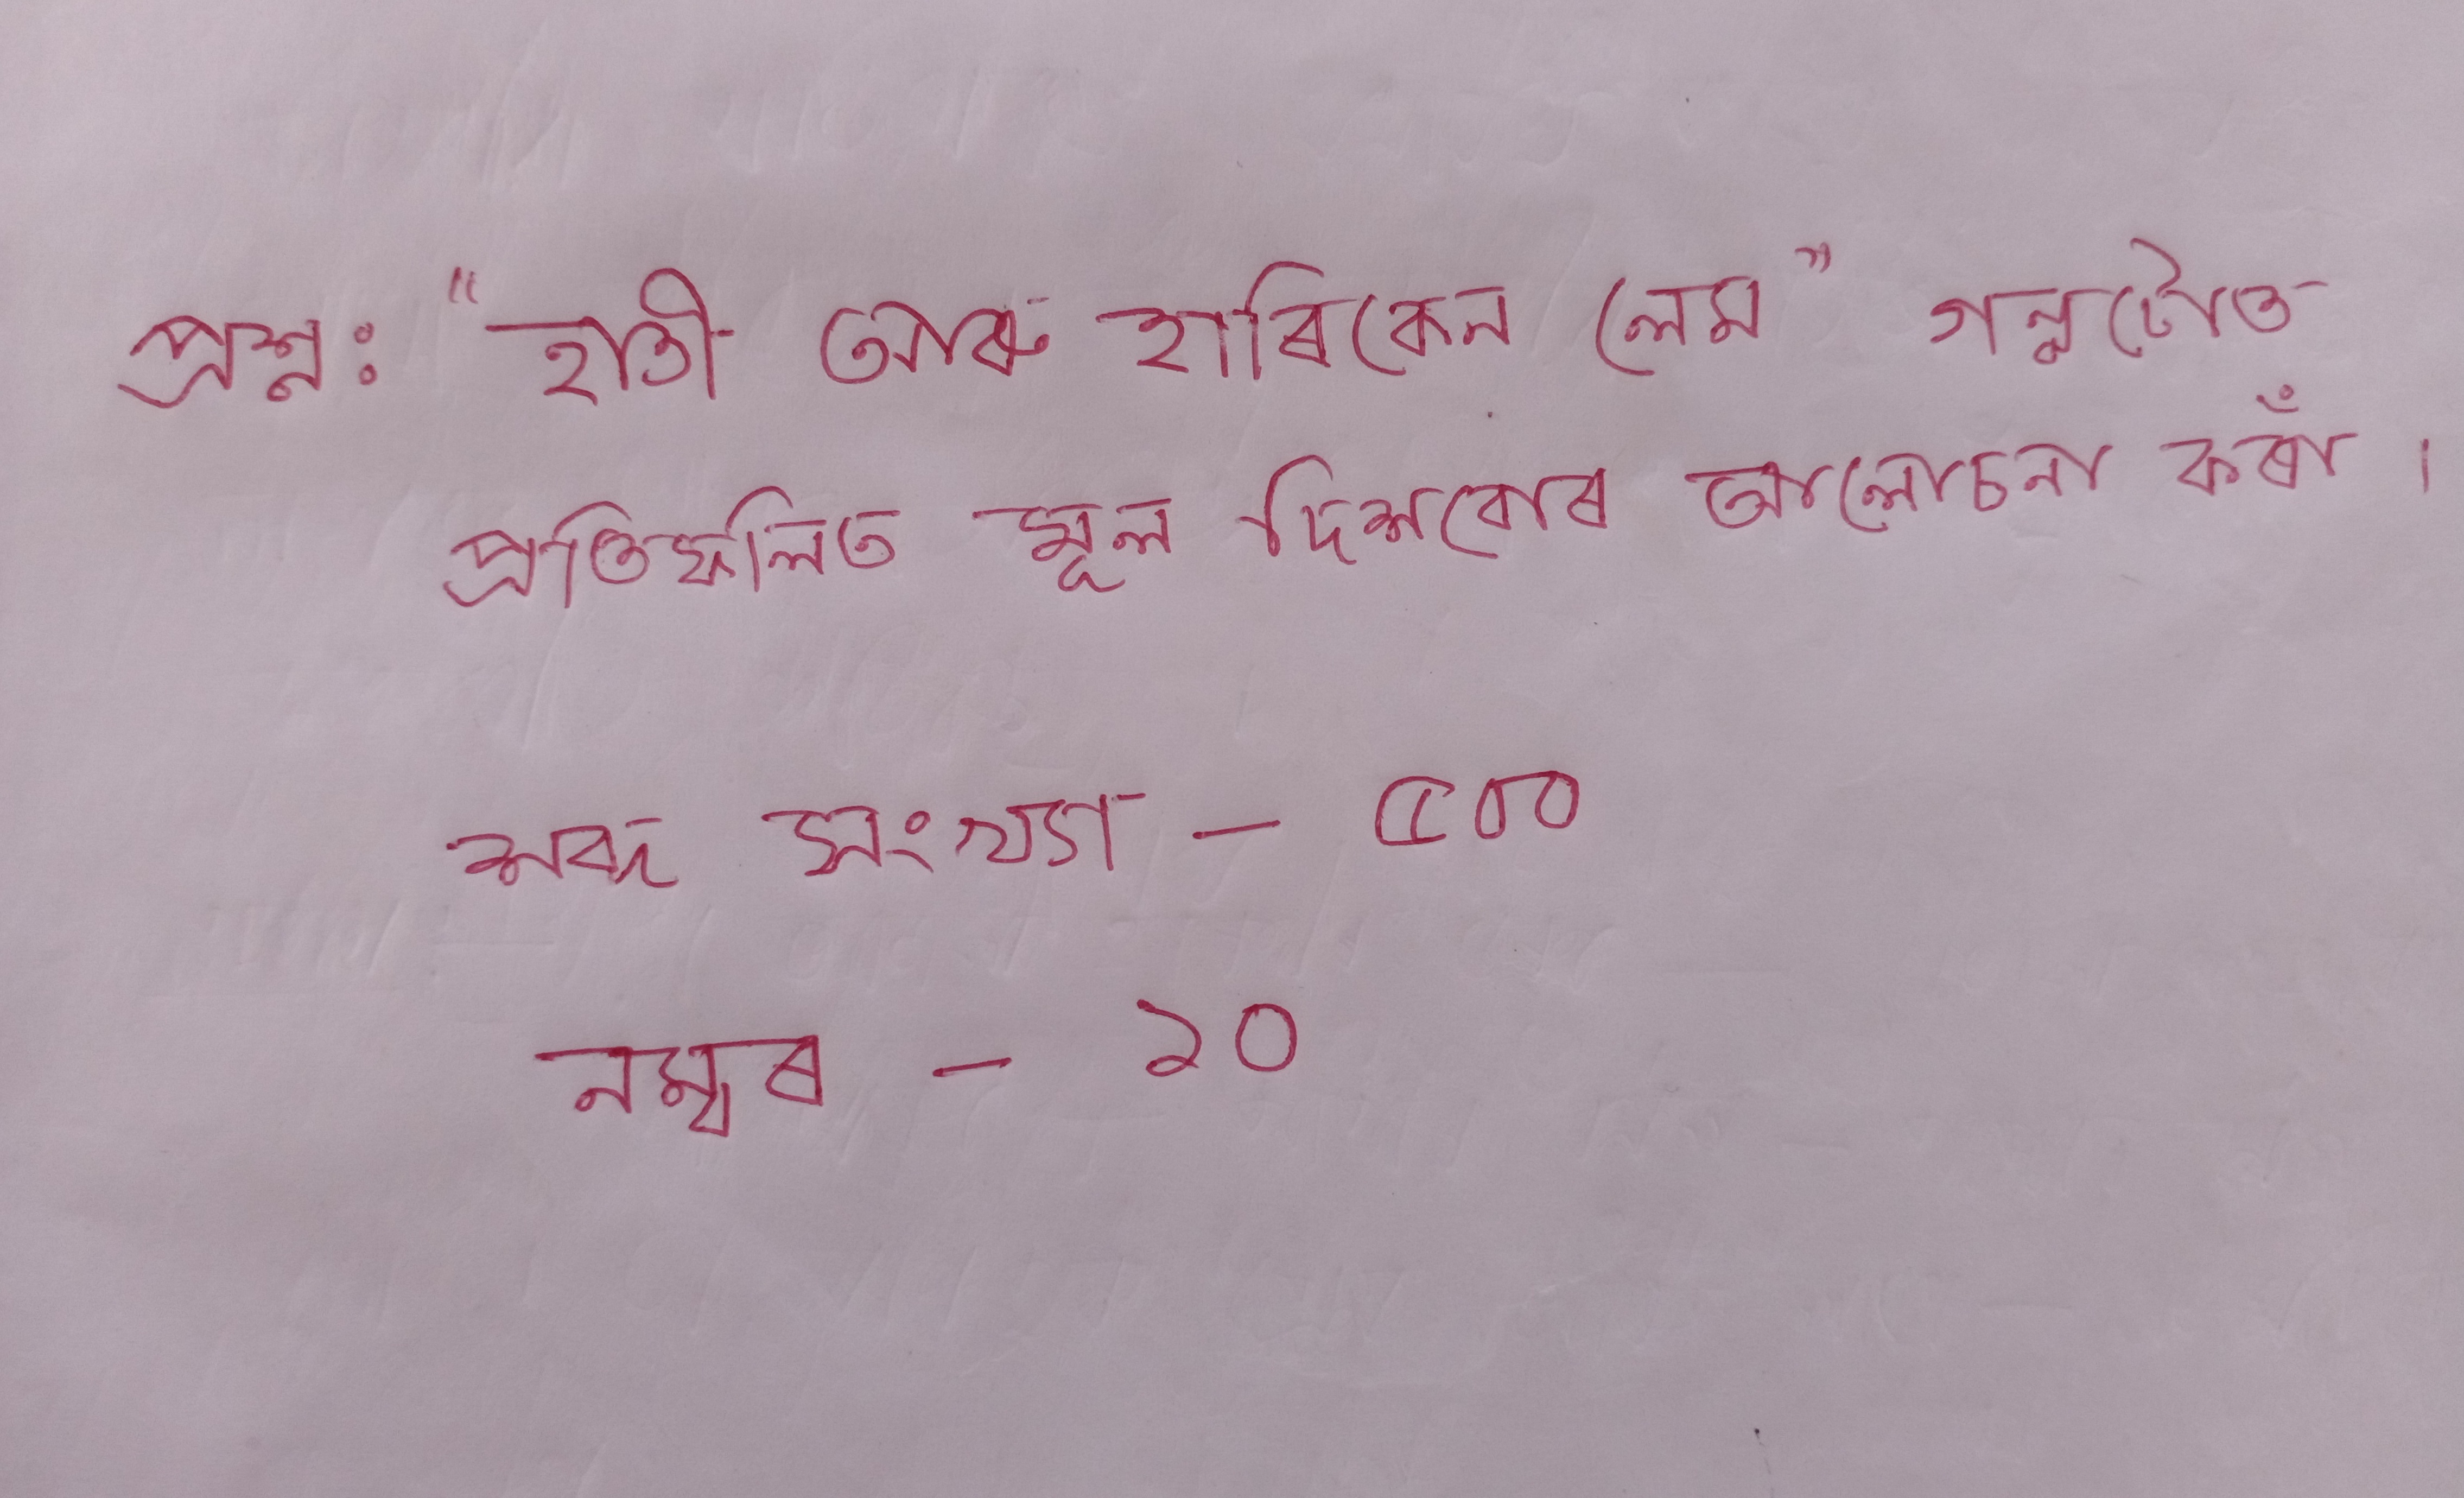 প্ৰশ্ন: "হাতী আৰু হাৰিকেন লেম" গল্পটোত
প্ৰতিফলিত মূল দিশবোৰ আলোচনা কৰাঁ।
শব্দ সংখ্যা - ৫০০
নম্বৰ - ১০